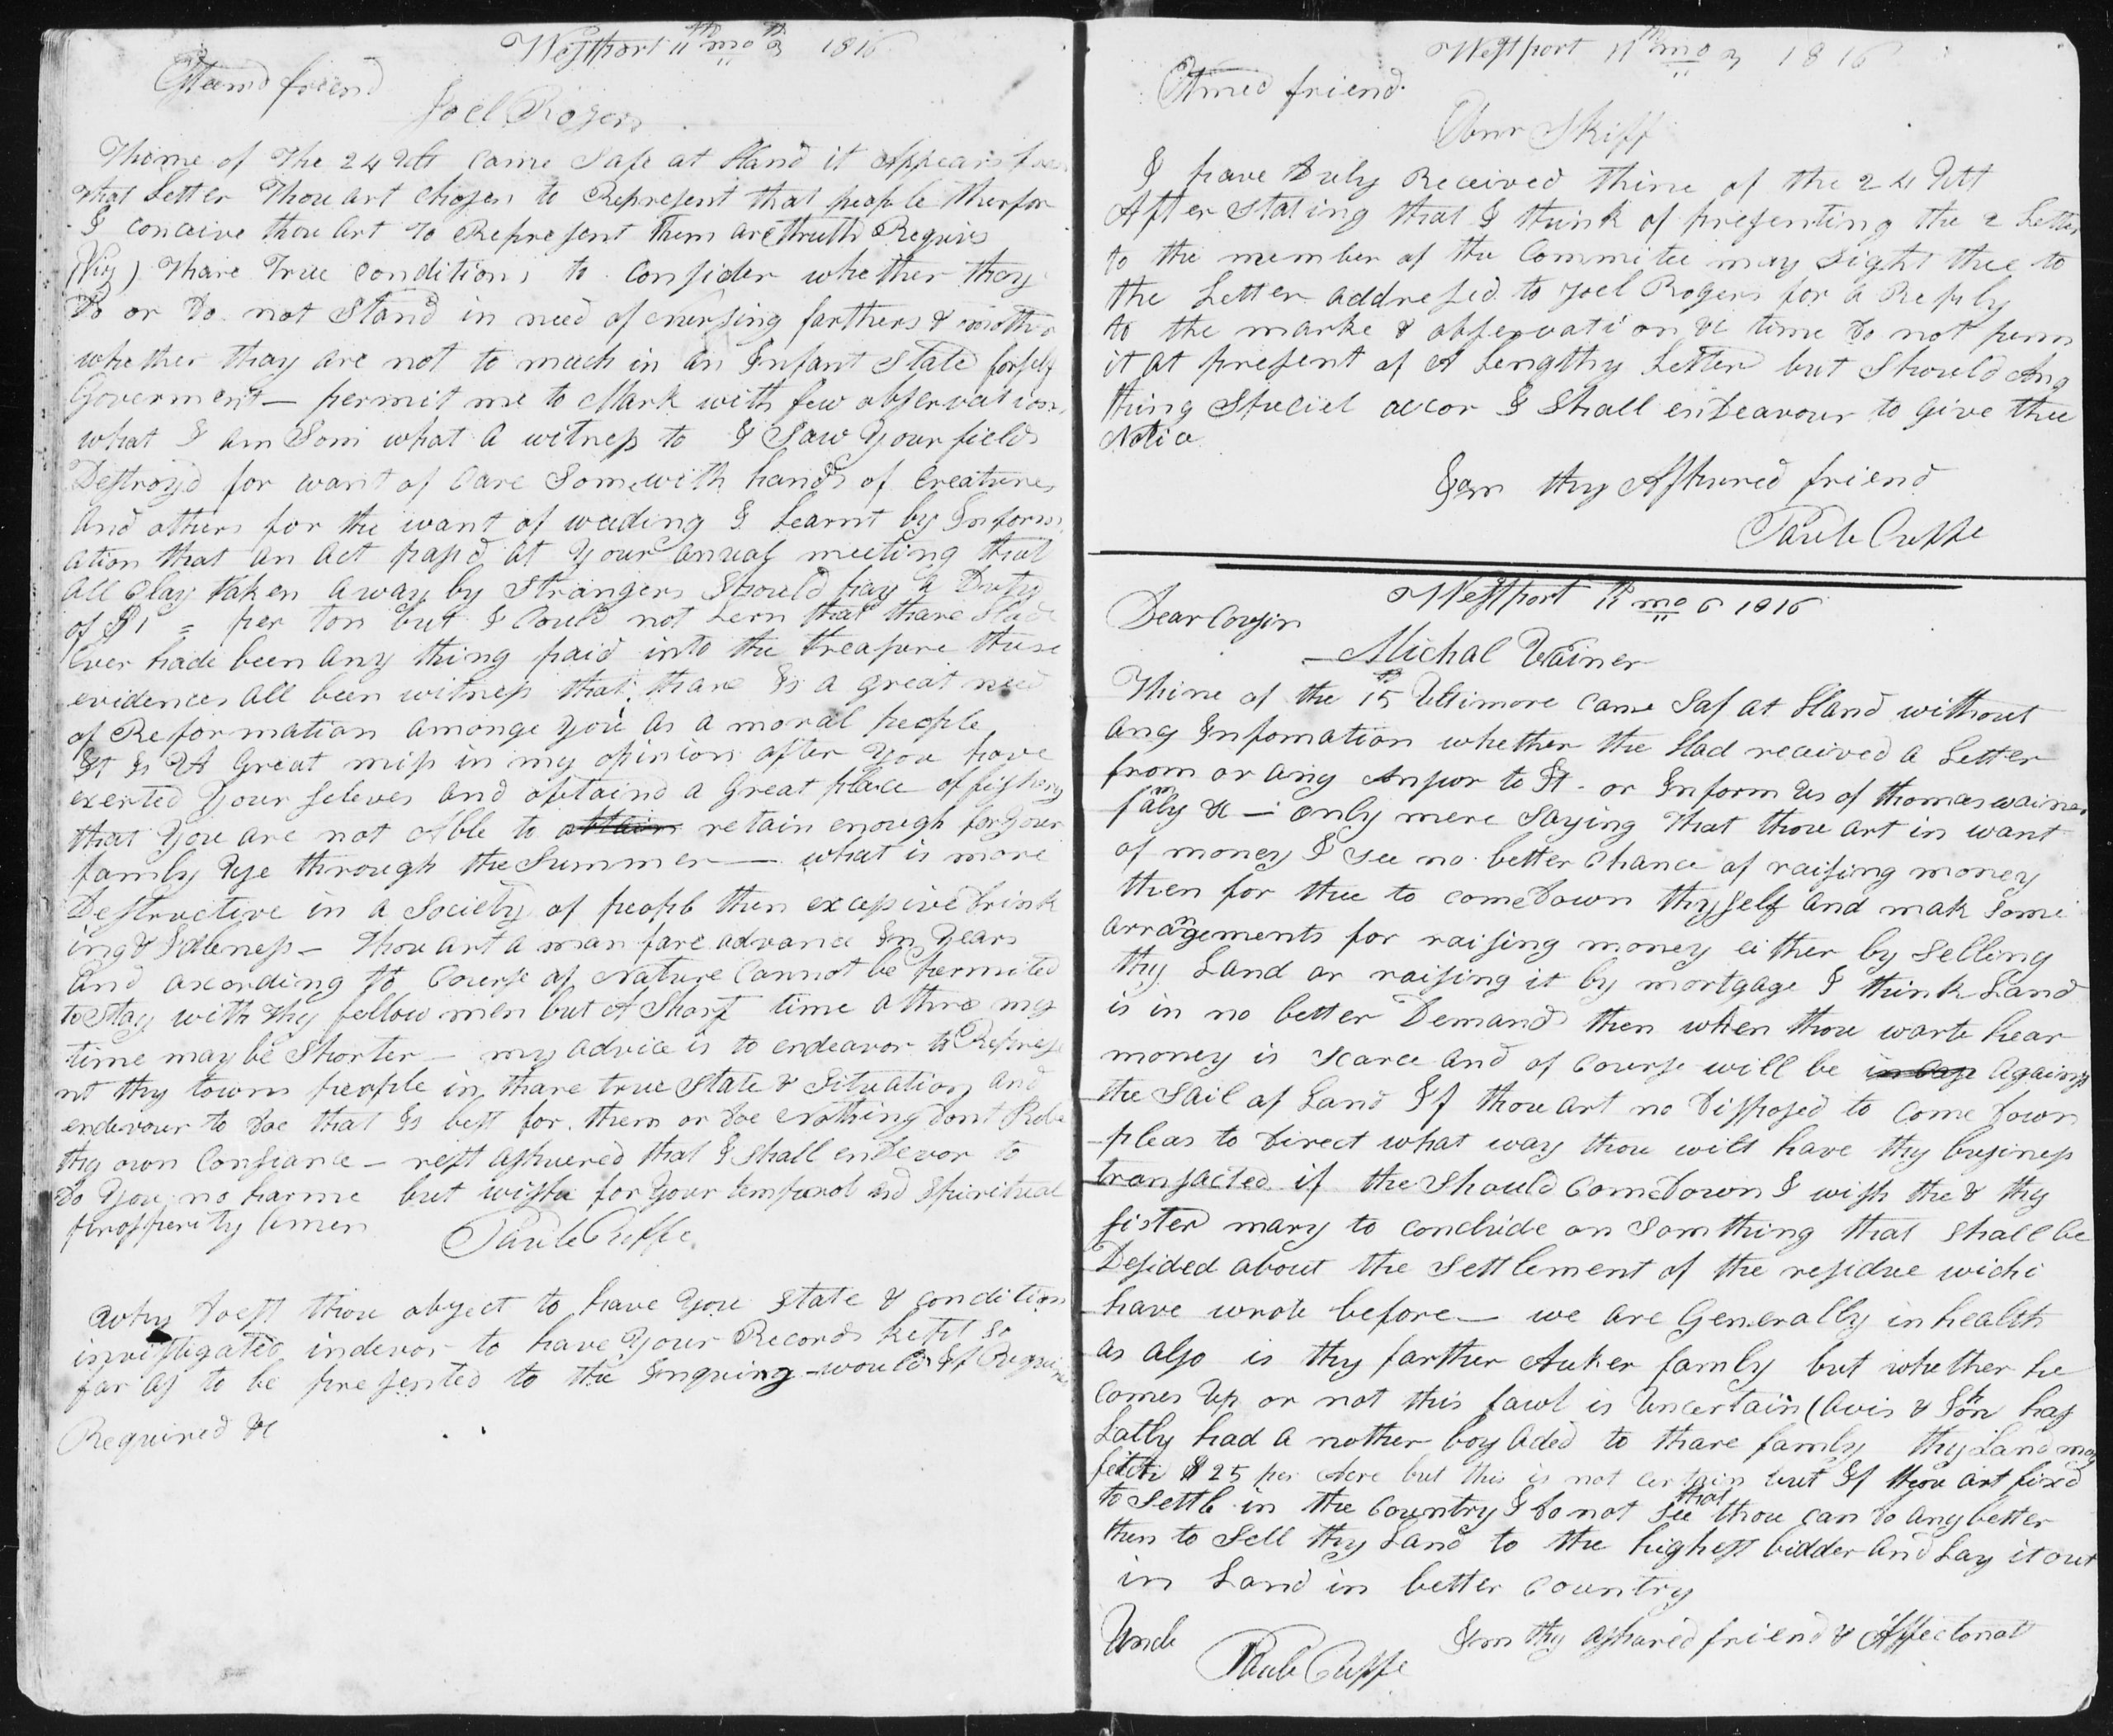 Westport 11th mo 3th 1816
Esteemd friend
Joel Rogers
Thine of the 24 Ult Came Safe at Hand it Appears
that Letter Thou art Chosen to Represent that people therfor
I Conceive thou art to Represent them are truth Requirs
(Viz) thare True Conditions to Consider whether thay
Do or Do not Stand in need of Nursing farthers & mothers
whether thay are not to much in an Infant State for self
Goverment — permit me to Mark with few observations
what I am Som what a witness to I Saw Your fields
Destroyd for want of Care Som with hands of Creatures
and others for the want of weeding I Learnt by Inform
ation that an act passd at Your anual meeting that
all Clay taken away by Strangers Should pay a Duty
of $1 = per ton but I Could not Lern that thare
Ever hade been any thing paid into the treasure these
evidences all been witness that thare Is a great need
of Reformation amonge you as a moral people
It Is A Great miss in my opinion after You have
exerted Your seleves and obtaind a Great place of fishery
that You are not Able to obtain retain enough for Your
famly Use through the Summer — what is more
Destructive in a Society of people then excessive Drink
ing & Idleness — thou art a man fare advance In Years
and according to Course of Nature Cannot be permited
to Stay with thy fellow men but A Short time a thre my
time may be Shorter — my advice is to endeavor to Represe
nt thy towns people in thare true State & Situation and
endevour to doe that Is best for them or doe Nothing Dont Robe
thy own Consiance — rest ashuered that I Shall enDevor to
Do You no harme but wish for Your temporal and Spiiritual
prosperity Amen
Paul Cuffe
Why Doest thou object to have You State & Condition
investigated indevor to have Your Records kept so
far as to be presented to the Inquiring would If
Required &c
Westport 11th mo 3 1816
Esteemed friend
Abnr Skiff
I have Duly Received thine of the 24 Ult
After stating that I think of presenting the 2 Letters
to the member of the Commitee may Sight thee to
the Letter addressed to Joel Rogers for a Reply
to the marke & observation &c time Do not perm
it at present of A Lengthy Letter but Should Any
thing Speciel accor I Shall enDeavour to give thee
Notice
I am thy Ashured friend
Paul Cuffe
Westport 11th mo 6 1816
Dear Cousin
Michal Wainer
Thine of the 15th Ultimore Came Saf at Hand without
any Infomation whether the Had received a Letter
from or any Answor to It - or Inform Us of thomas wainer
famly &c — only mere Saying that thou art in want
of money I see no better Chance of raising money
then for thee to come Down thyself and mak Some
arrangements for raising money either by Selling
thy Land or raising it by mortgage I think Land
is in no better Demand then when thou warte hear
money is scarce and of Course will be against
the Sail of Land If thou art no Disposed to Come Down
pleas to Direct what way thou wilt have thy business
transacted if the Should come Down I wish the & thy
sister mary to conclude on Somthing that Shall be
Desided about the Settlement of the residue wich i
have wrote before — we are Generally in health
as also is thy farther Auker famly but whether he
Comes Up or not this fawl is Uncertain (Avis & Son has
Latly had a nother boy aded to thare famly thy Land may
fetch $25 per Acre but this is not certain but If thou art fixd
to Settl in the Country I Do not See that thou can Do any better
then to Sell thy Land to the highest bidder and Lay it out
in Land in better Country
I am thy ashured friend & Affectionat
Uncle
Paul Cuffe